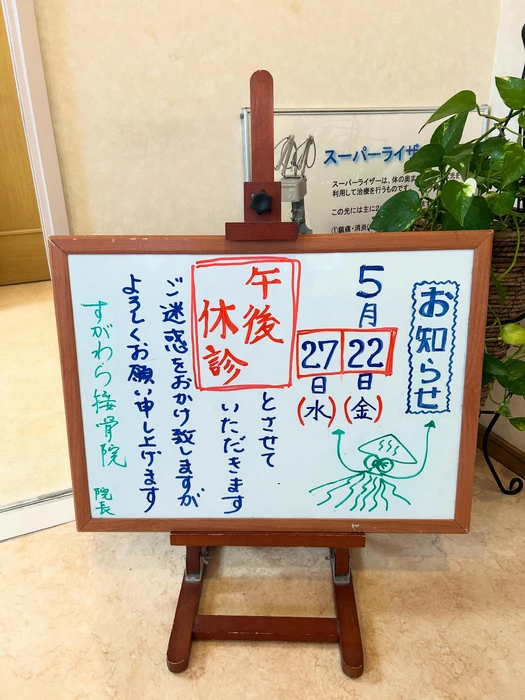 お知らせ
5月
22日(金)
27日(水)
午後
休診
とさせて
いただきます
ご迷惑をおかけ致しますが
よろしくお願い申し上げます
すがわら接骨院 院長
スーパーライザ
スーパーライザーは、体の奥ま
利用して治療を行うものです
この光には主に2
①鎮痛・消炎